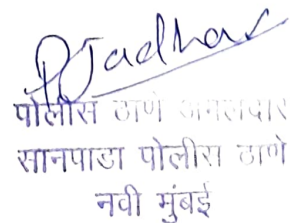 PJadhav
पोलीस ठाणे अंमलदार
सानपाडा पोलीस ठाणे
नवी मुंबई